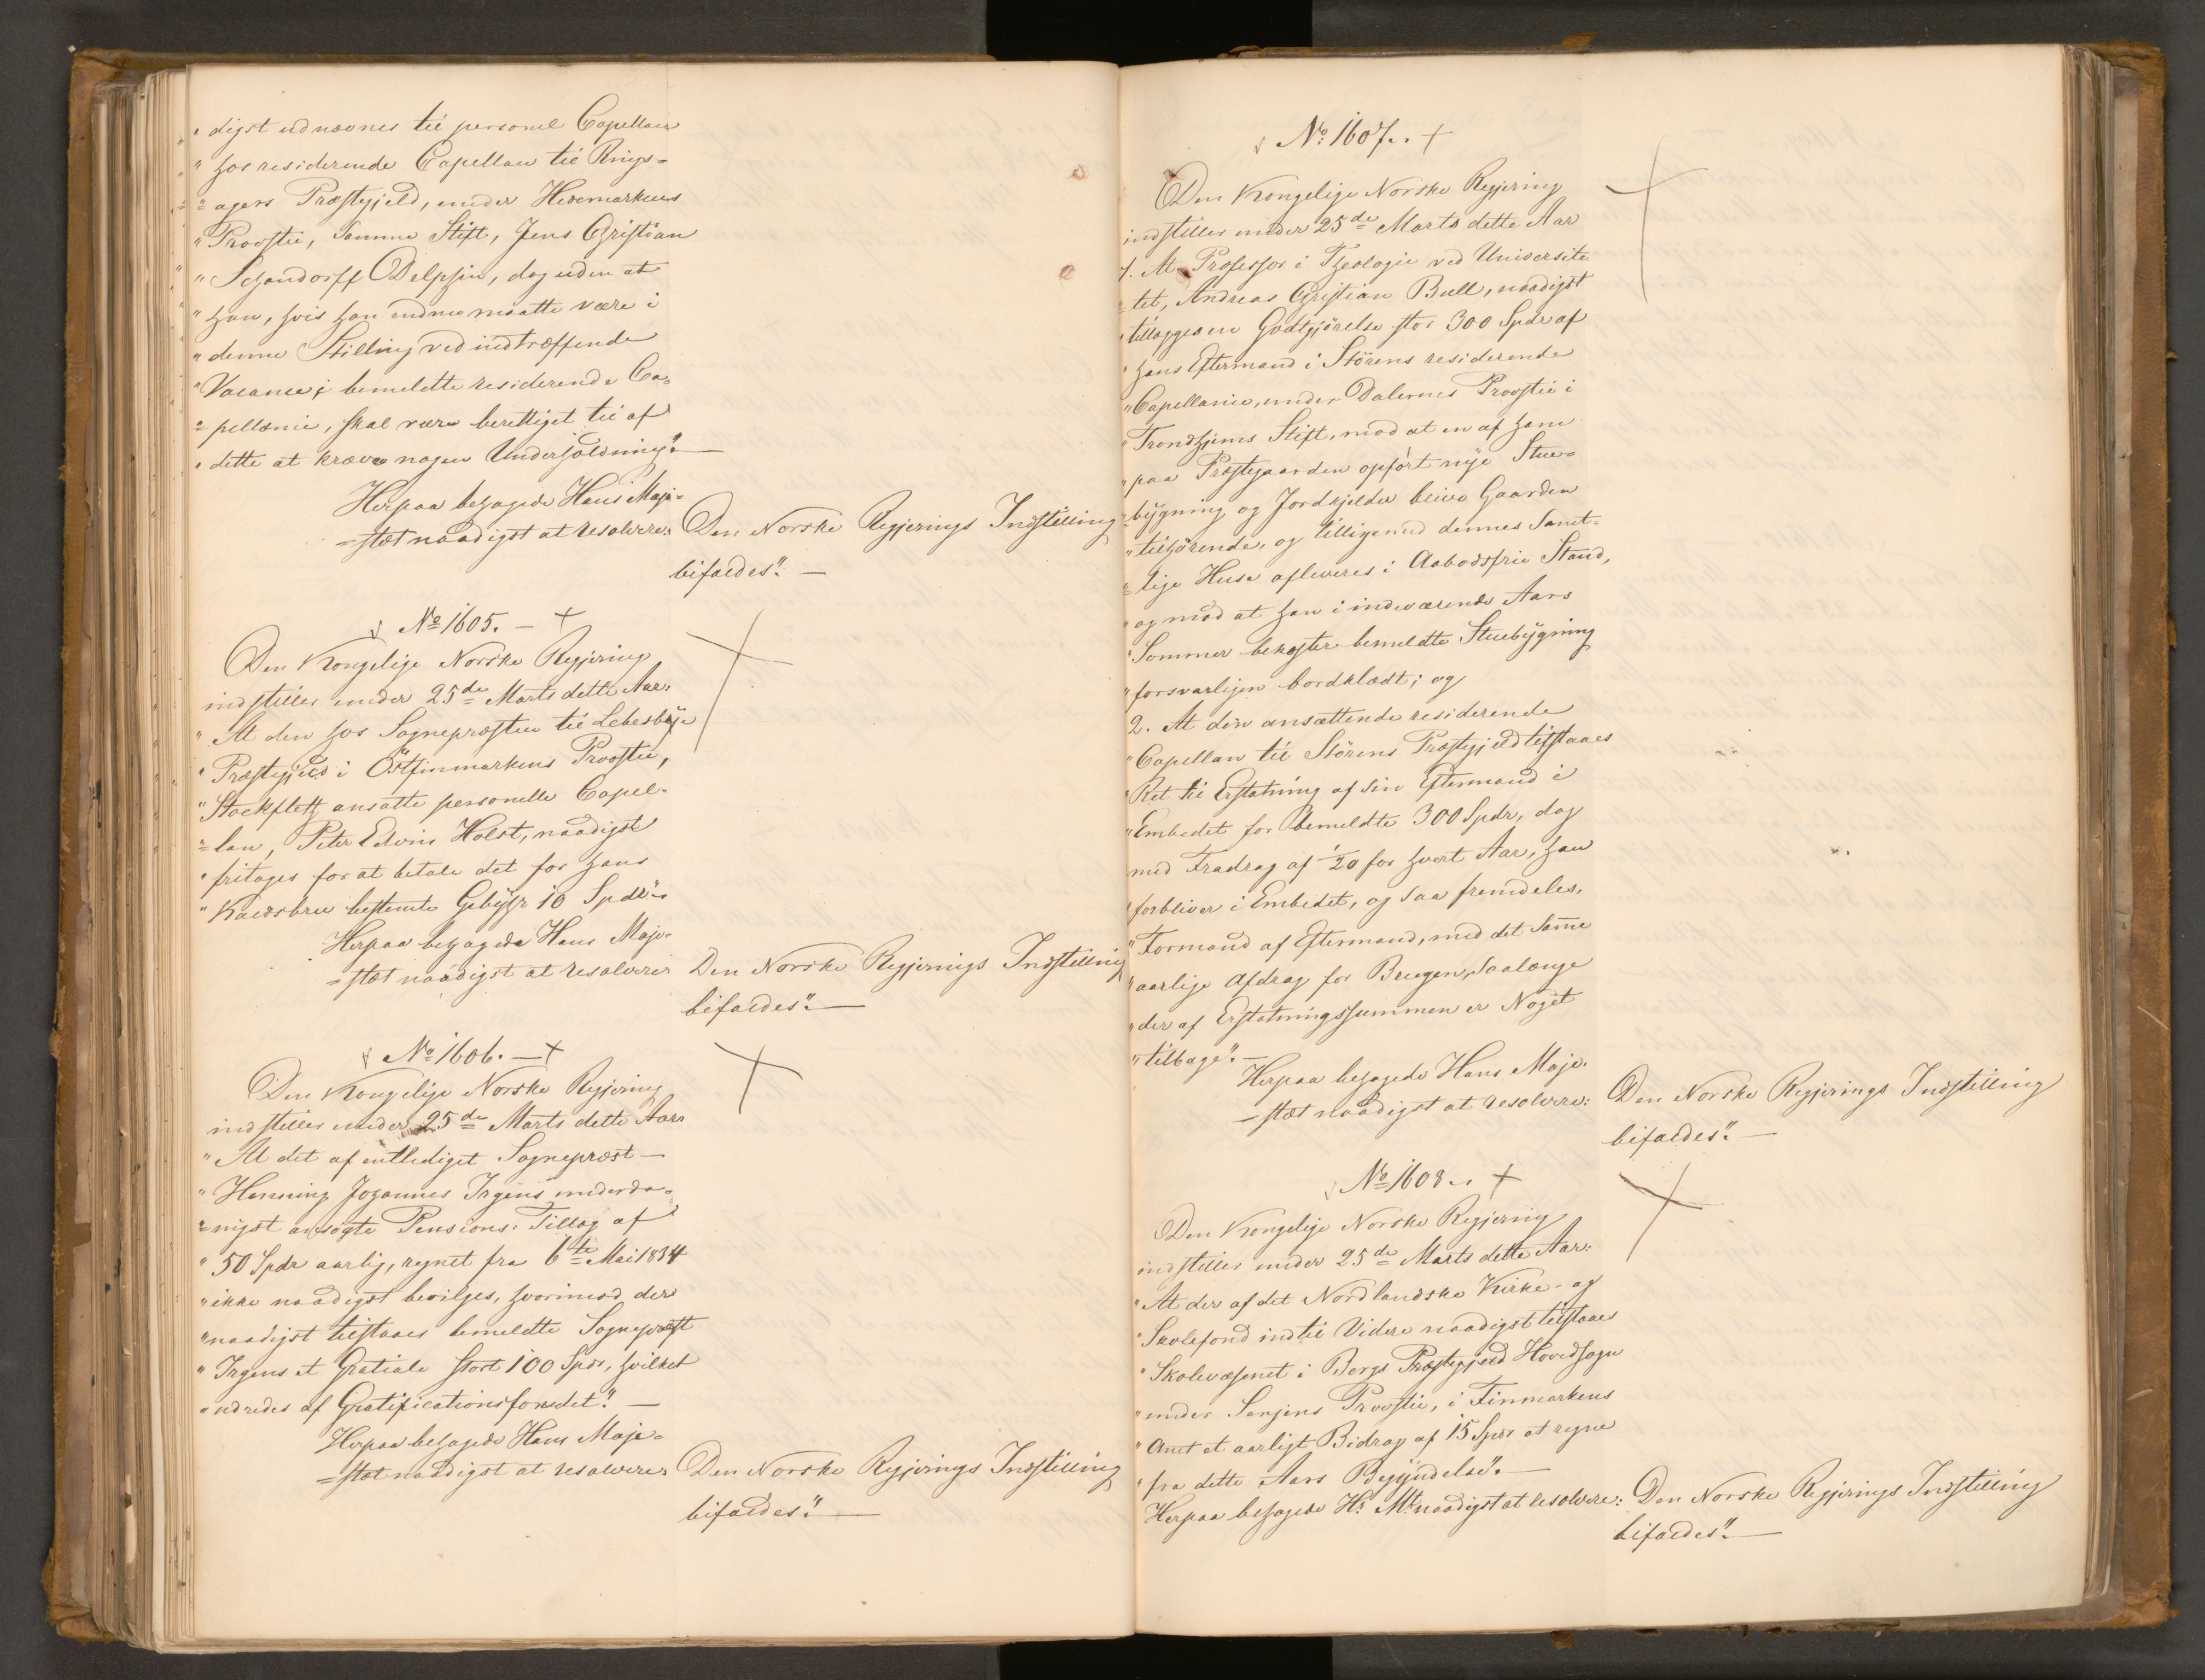 "digst udnævnes til personel Capellan
"hos residerende Capellan til Rings=
"=agers Præstegjeld, under Hedemarkens
"Provstie, samme Stift, Jens Christian
"Schandorff Delphin, dog uden at
"han, hvis han endnu maatte være i
"denne Stilling ved indtræffende
"Vacance i bemeldte residerende Ca=
"=pellanie, skal være berettiget til af
"dette at kræve nogen Underholdning".
Herpaa behagede Hans Maje=
=stæt naadigst at resolvere: Den Norske Regjerings Indstilling
bifaldes". —
No 1605. — +
Den Kongelige Norske Regjering
indstiller under 25de Marts dette Aar:
"At den hos Sognepræsten til Lebesbye
"Præstegjeld i Östfinmarkens Provstie,
"Stockfleth ansatte personelle Capel=
"=lan, Peter Edvin Holst, naadigst
"fritages for at betale det for hans
"Kaldsbrev bestemte Gebyhr 10 Spdr".
Herpaa behagede Hans Maje=
=stæt naadigst at resolvere: Den Norske Regjerings Indstilling
bifaldes". —
No 1606. — +
Den Kongelige Norske Regjering
indstiller under 25de Marts dette Aar:
"At det af entlediget Sognepræst —
"Henning Johannes Irgens underda=
"=nigst ansøgte Pensions-Tillæg af
"50 Spdr aarlig, regnet fra 6te Mai 1834
"ikke naadigst bevilges, hvorimod der
"naadigst tilstaaes bemeldte Sognepræst
"Irgens et Gratiale stort 100 Spdr, hvilket
"udredes af Gratificationsfondet". —
Herpaa behagede Hans Maje=
=stæt naadigst at resolvere: Den Norske Regjerings Indstilling
bifaldes". —
No 1607. +
Den Kongelige Norske Regjering
indstiller under 25de Marts dette Aar
1. At Professor i Theologie ved Universite
=tet, Andreas Christian Bull, naadigst
"tillægges en Godtgjörelse stor 300 Spdr af
"hans Eftermand i Störens residerende
"Capellanie, under Dalernes Provstie i
"Trondhjems Stift, mod at en af ham
"paa Præstegaarden opfört nye Stue=
"bygning og Jordkjelder blive Gaarden
"tilhörende, og tilligemed dennes samt=
"=lige Huse afleveres i Aabodsfrie Stand,
"og mod at han i indeværende Aars
"Sommer bekoster bemeldte Stuebygning
"forsvarligen bordklædt; og
2. At den ansættende residerende
"Capellan til Störens Præstegjeld tilstaaes
"Ret til Erstatning af sin Eftermand i
"Embedet for bemeldte 300 Spdr, dog
med Fradrag af 1/20 for hvert Aar, han
"forbliver i Embedet, og saa fremdeles,
"Formand af Eftermand, med det samme
"aarlige Afdrag for Brugen, saalænge
"der af Erstatningssummen er Noget
"tilbage". —
Herpaa behagede Hans Maje=
=stæt naadigst at resolvere: Den Norske Regjerings Indstilling
bifaldes". —
No 1608. +
Den Kongelige Norske Regjering
indstiller under 25de Marts dette Aar:
"At der af det Nordlandske Kirke- og
"Skolefond indtil Videre naadigst tilstaaes
"Skolevæsenet i Bergs Præstegjeld Hovedsogn
"under Senjens Provstie, i Finmarkens
"Amt et aarligt Bidrag af 15 Spdr at regne
"fra dette Aars Begyndelse". —
Herpaa behagede Hs Mt naadigst at resolvere: Den Norske Regjerings Indstilling
bifaldes". —